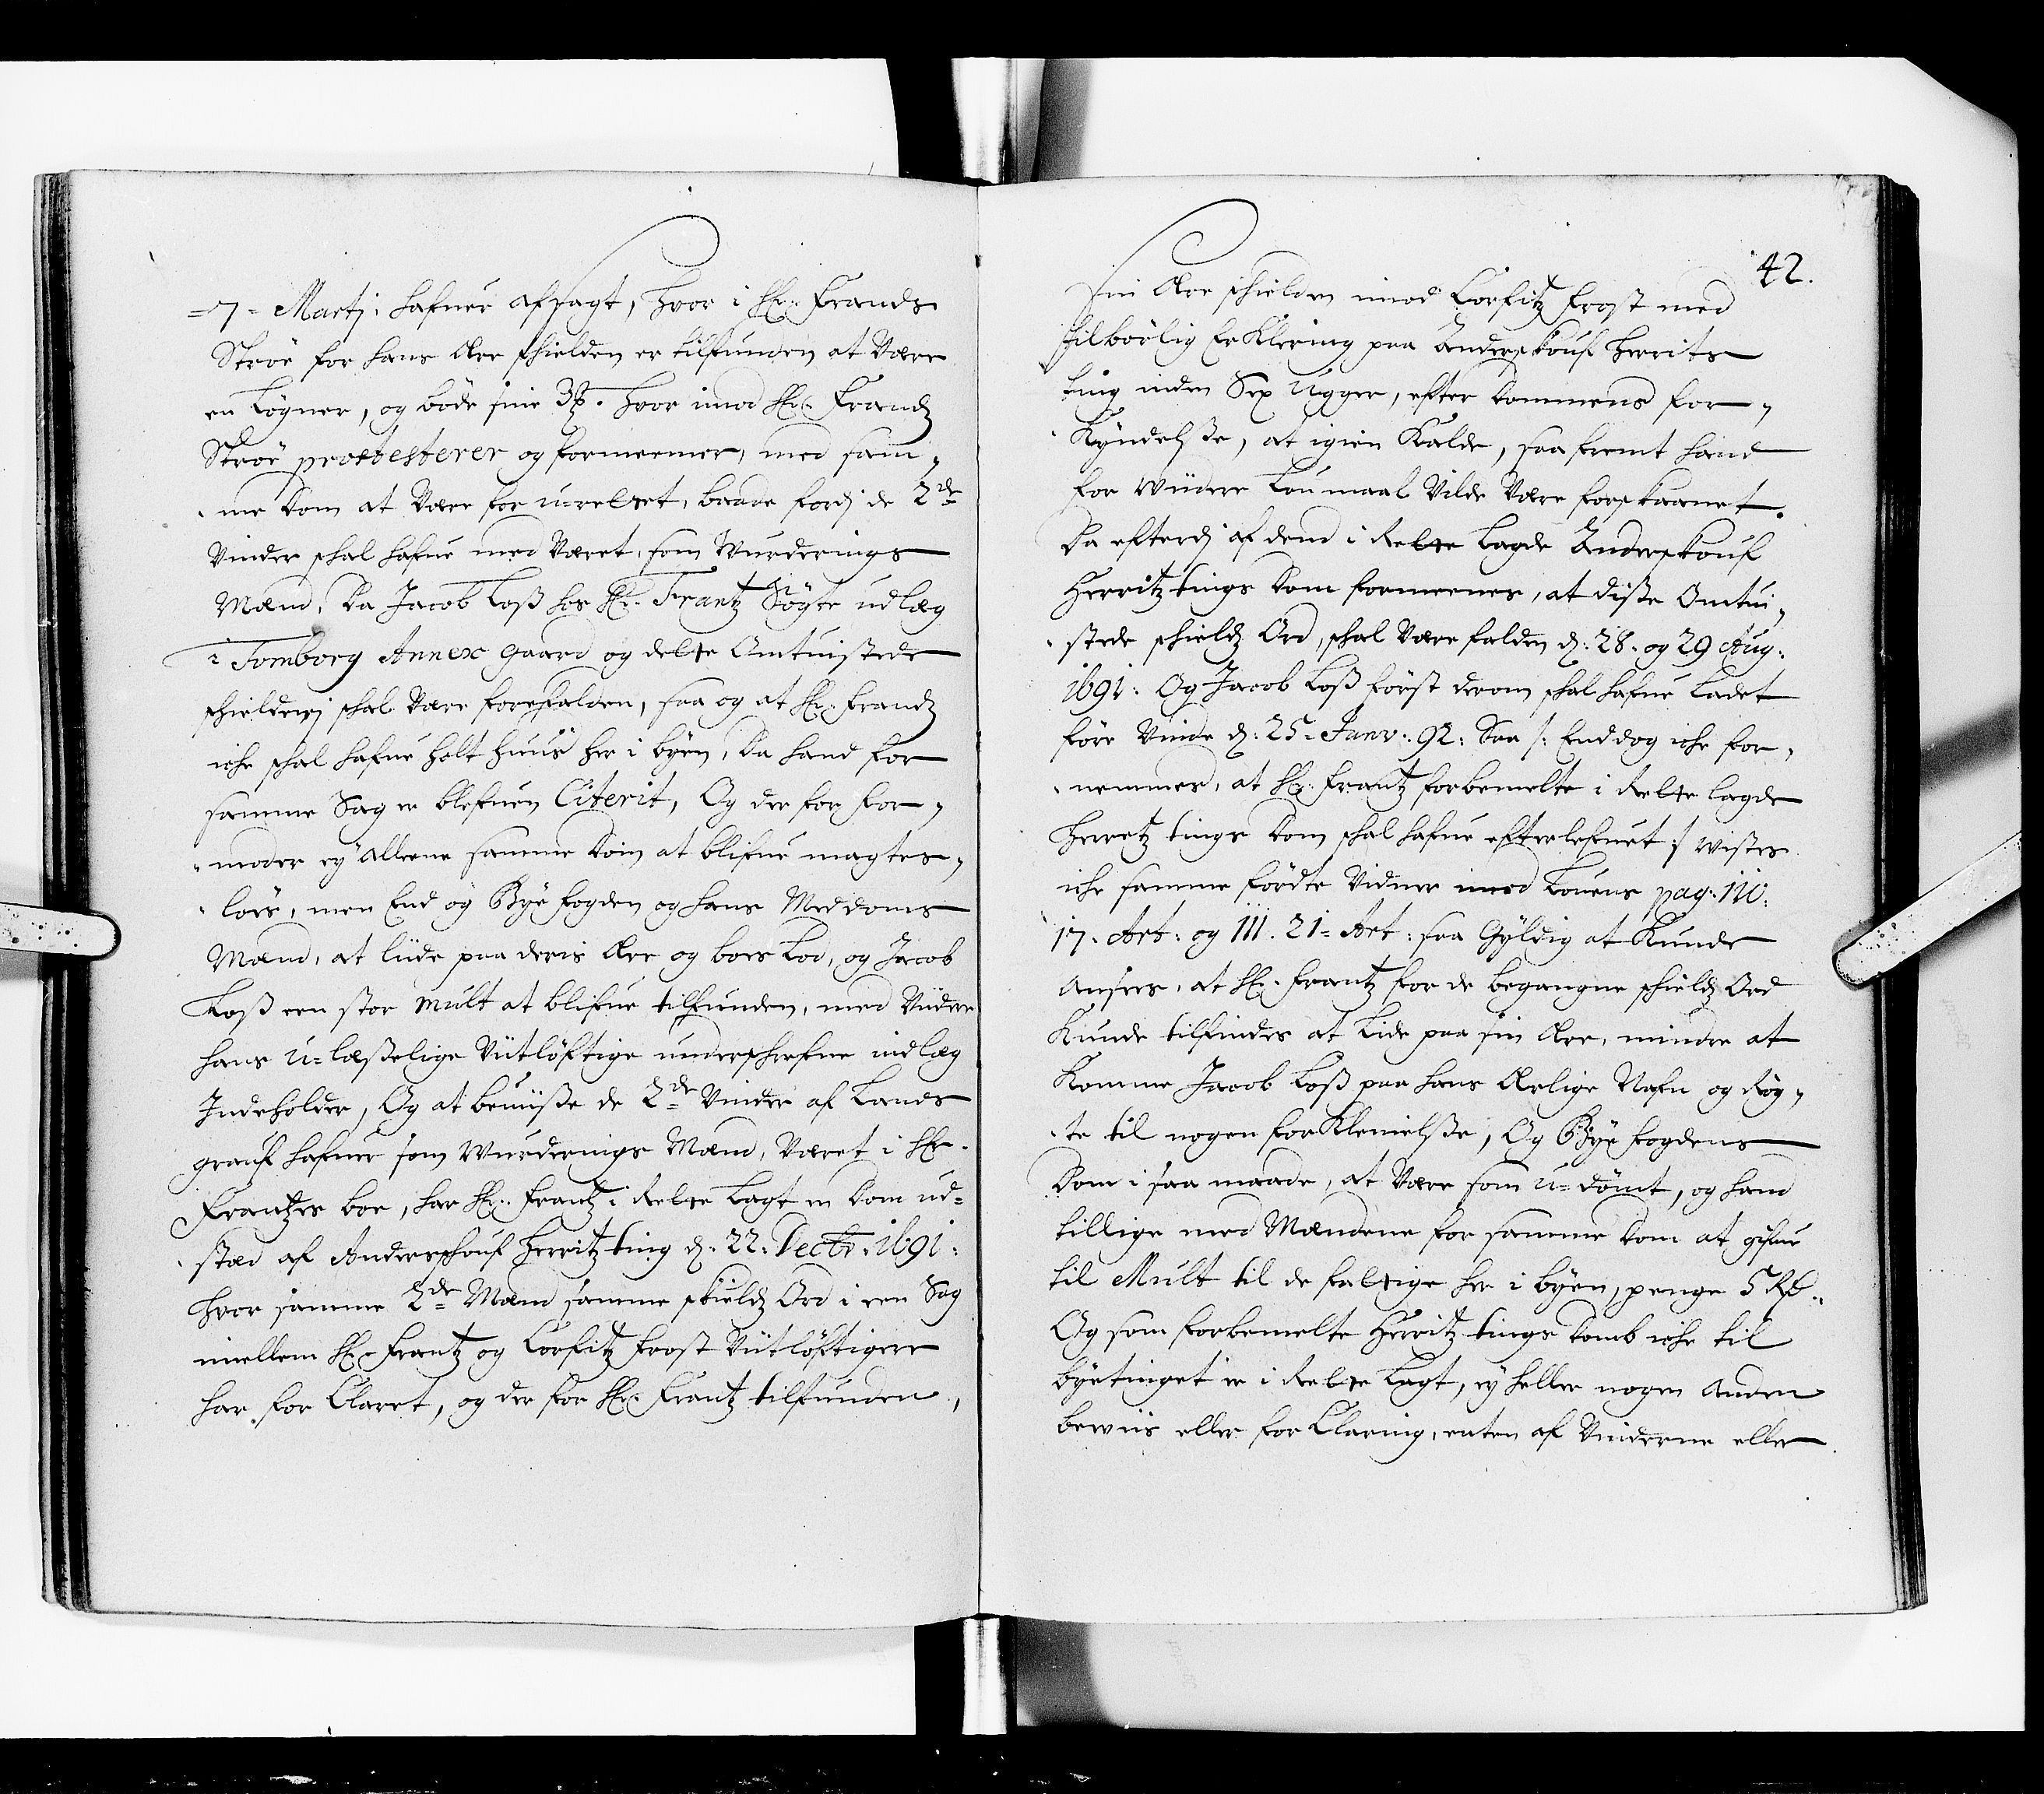 =7= Martj: hafuer afsagt, hvor i Hr: Frands
Ströe for hans Ære schielden er tilfunden at være
en Løgner, og böde sine 3 ℔. hvor imod Hr: Frandz
Ströe protesterer og formeener, med sam-
me Dom at være for u-rettet, baade fordj de 2de
Vinder schal hafue med Været, som Wurderings
Mænd, Da Jacob Loss hos Hr: Frantz Søgte udlæg
i Tomborg Annex gaard og dette Omtuistede
schielderj schal være forefalden, saa og at Hr: Frandz
iche schal hafue holt huus her i byen, Da hand for
samme Sag er blefuen Citerit, Og der for for-
moder ej alleene samme Dom at blifue magtes-
løes, men End og Bye fogden og hans Meddoms
Mænd, at liide paa deris Ære og boes Lod, og Jacob
Loss een stor Mult at blifue tilfunden, med Viidere
hans U-læsselige Viitløftige underschrefne indlæg
Indeholder, Og at beviisse de 2de Vinder af Lands
grauf hafuer som Wurderings Mænd, Været i Hr.
Frantzes boe, har Hr: Frantz i Rette Lagt en Dom ud-
stæd af Anderschouf Herritz ting d: 22: Dectr: 1691:
hvor samme 2de Mænd samme skieldz Ord i een Sag
imellem Hr: Frantz og Corfitz Frost Viitløftigere
har for Claret, og der for Hr: Frantz tilfunden,
42.
sin Ære schielden imod Corfitz Frost med
tilbörlig Erklering paa Anderskouf Herrits
ting inden Sex Ugger, efter Dommens for-
Kyndelsse, at igien Kalde, saafremt hand
for Wiidere Lou maal Vilde Være forskaanet.
Da efterdj af dend i Rette Lagde Anderskouf
Herritz tings Dom formeenes, at disse Omtui-
stede schieldz Ord, schal Være falden d: 28. og 29 Aug:
1691: Og Jacob Loss först derom schal hafue Ladet
före Vinde d: 25= Janv: 92: Saa /: Enddog iche for-
nemmes, at Hr: Frantz forbemelte i Rette lagde
Herretz tings Dom schal hafue efterlefuet :/ wistes
iche samme førdte Vidner imod Louens pag: 110:
17. Art: og 111. 21= Art: saa Gyldig at Kunde
ansees, at Hr: Frantz for de begangne schieldz Ord
Kunde tilfindes at Lide paa sin Ære, mindre at
Komme Jacob Loss paa hans Ærlige Nafn og Røg-
te til nogen forKlenielsse, Og Bye fogdens
Dom i saa maade, at Være som u-dömt, og hand
tillige med Mændene for samme Dom at gifue
til Mult til de fattige her i byen, penge 5 Rd.
Og som forbemelte Herritz tings Domb iche til
byetinget er i Rette Lagt, ej heller nogen Anden
beviis eller for Claring, enten af Vinderne eller